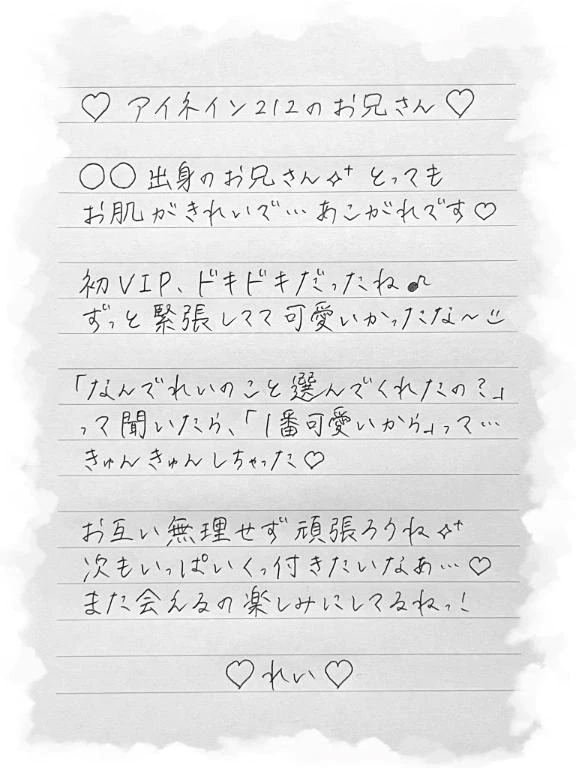 ♡ アイネイン212のお兄さん ♡
〇〇 出身のお兄さん✧⁺ とっても
お肌がきれいで…あこがれです♡
初VIP、ドキドキだったね♪
ずっと緊張してて可愛いかったな〜☺
「なんでれいのこと選んでくれたの?」
って聞いたら、「1番可愛いから」って…
きゅんきゅんしちゃった♡
お互い無理せず頑張ろうね✧⁺
次もいっぱいくっ付きたいなぁ…♡
また会えるの楽しみにしてるねっ!
♡ れい ♡